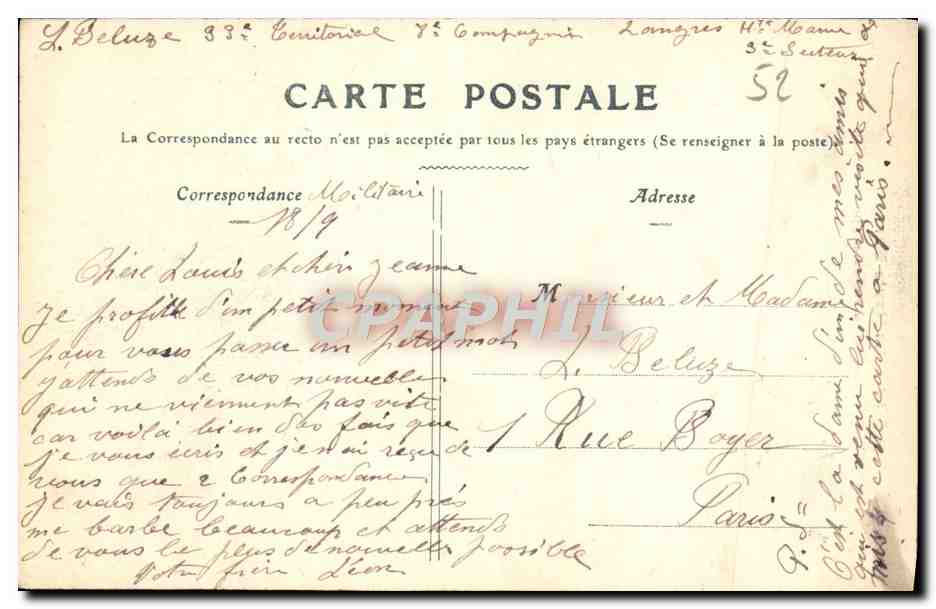 L. Beluze 33e Territorial 7e Compagnie Langres Hte Marne
3e Secteur
52
CARTE POSTALE
La Correspondance au recto n'est pas acceptée par tous les pays étrangers (Se renseigner à la poste)
Correspondance Militaire
18/9
Chère Louis et chèri Jeanne
je profitte d'un petit moment
pour vous passer un petit mot
j'attends de vos nouvelles
qui ne viennent pas vite
car voilà bien des fois que
je vous écris et je n'ai reçu de
vous que 2 Correspondances
je vais toujours a peu prés
me barbe beaucoup et attends
de vous le plus de nouvelles possible
Votre frère Léon
Adresse
Monsieur et Madame
L. Beluze
1 Rue Boyer
Paris
P.S.
C'est la dame d'un de mes amis
qui est venue lui rendre visite qui a
mis cette carte a Paris.
CPAPHIL